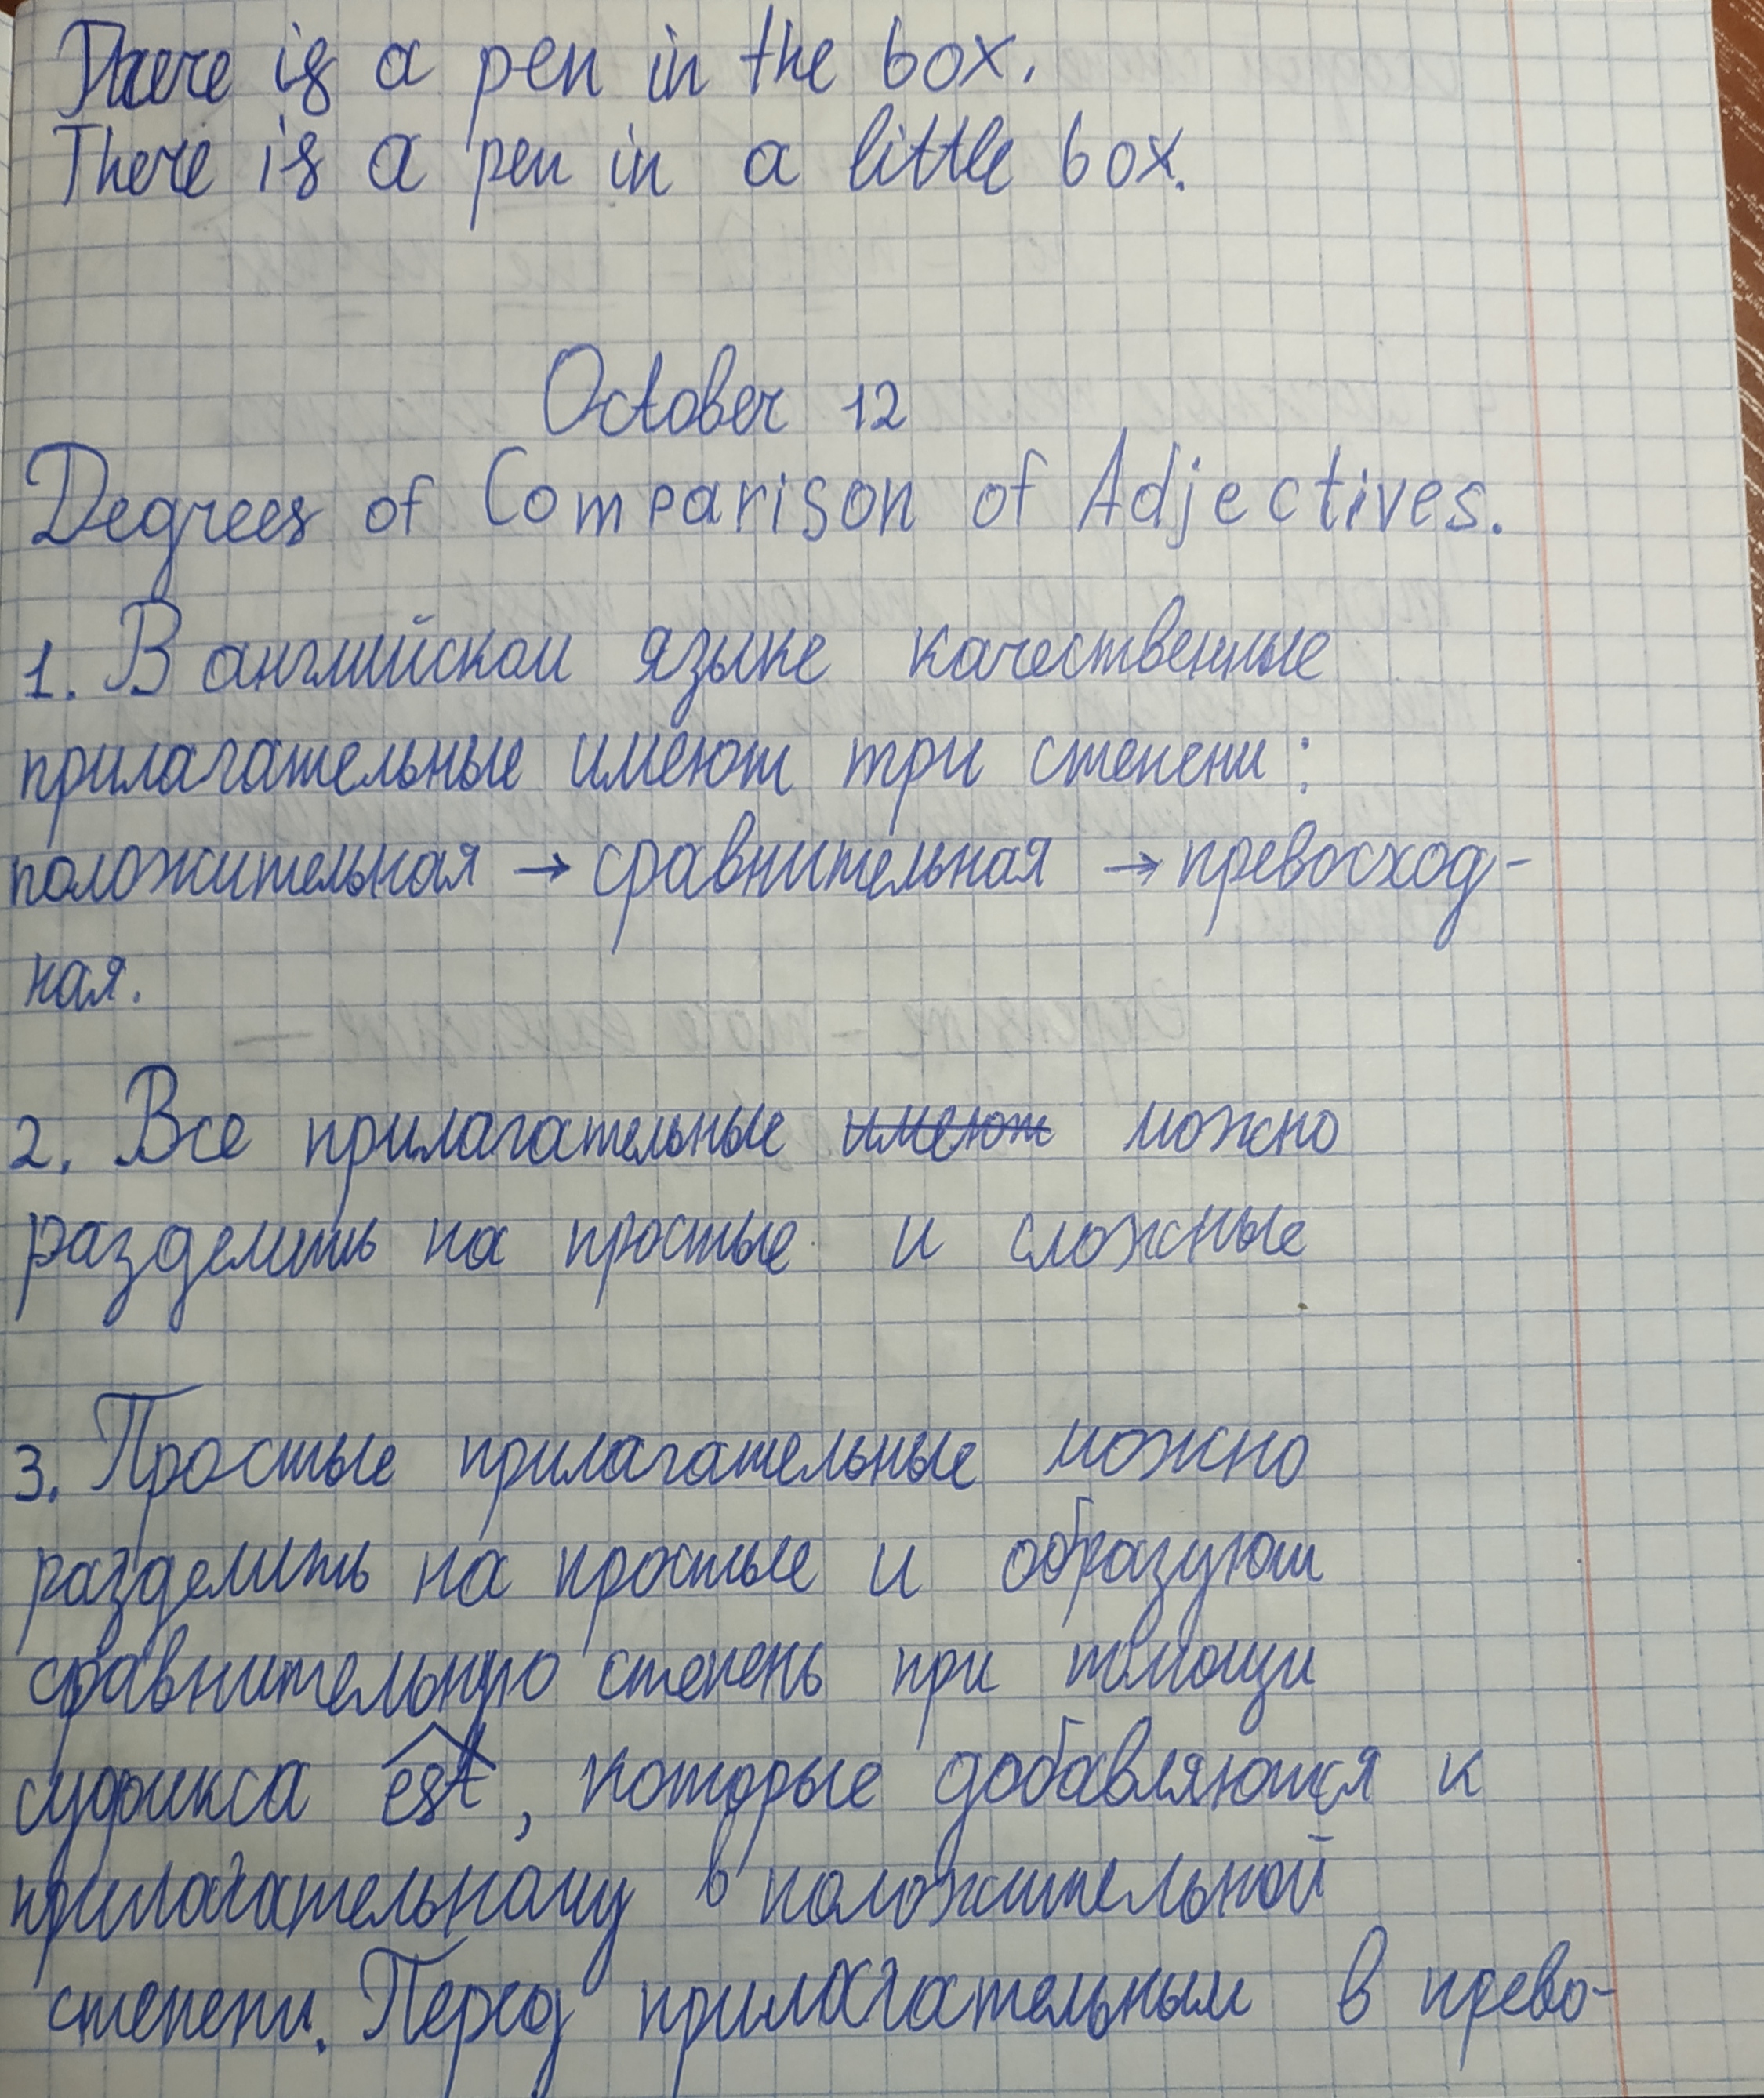 There is a pen in the box.
There is a pen in a little box.
October 12
Degrees of Comparison of Adjectives.
1. В английском языке качественные
прилагательные имеют три степени:
положительная → сравнительная → превосход-
ная.
2. Все прилагательные имеют можно
разделить на простые и сложные
3. Простые прилагательные можно
разделить на простые и образуют
сравнительную степень при помощи
суфикса est, которые добавляются к
прилагательному в положительной
степени. Перед прилагательным в прево-